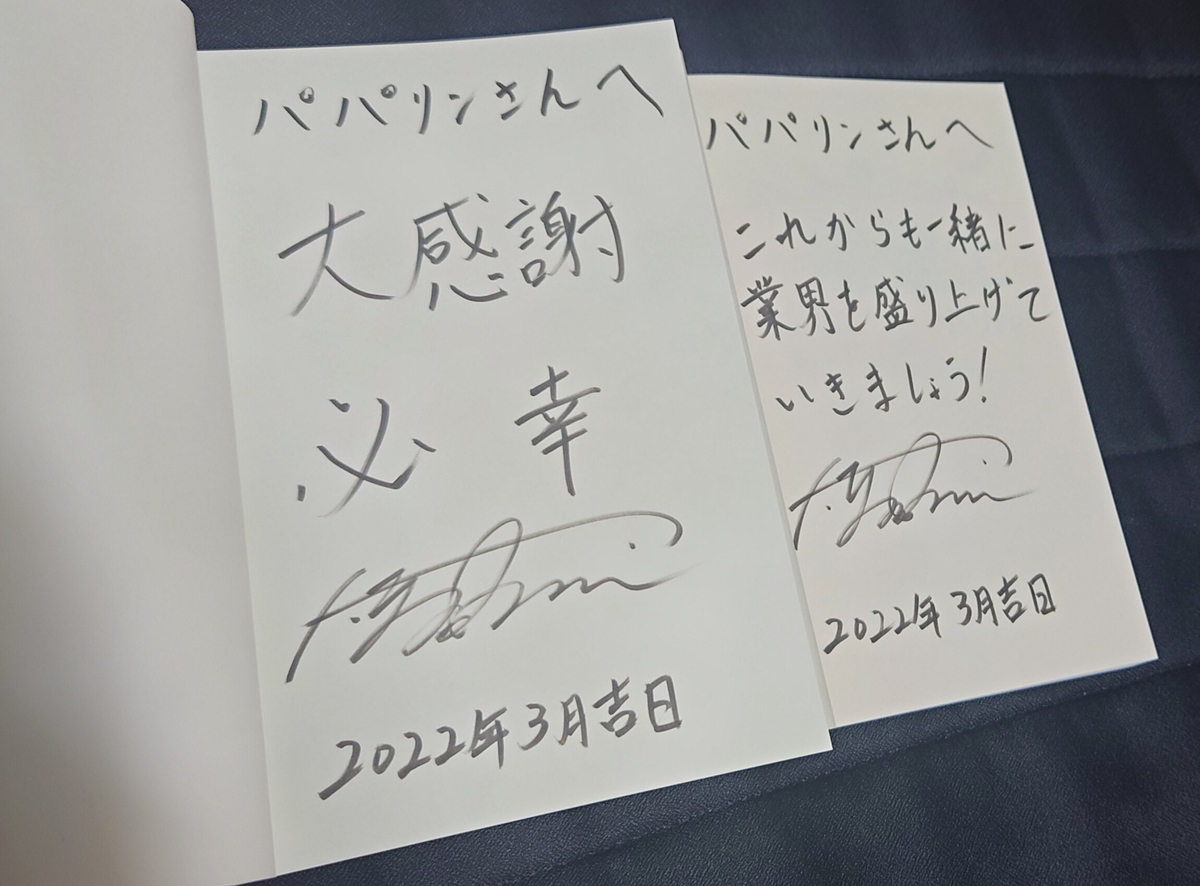 パパリンさんへ
大感謝
必幸
2022年3月吉日
パパリンさんへ
これからも一緒に
業界を盛り上げて
いきましょう!
2022年3月吉日